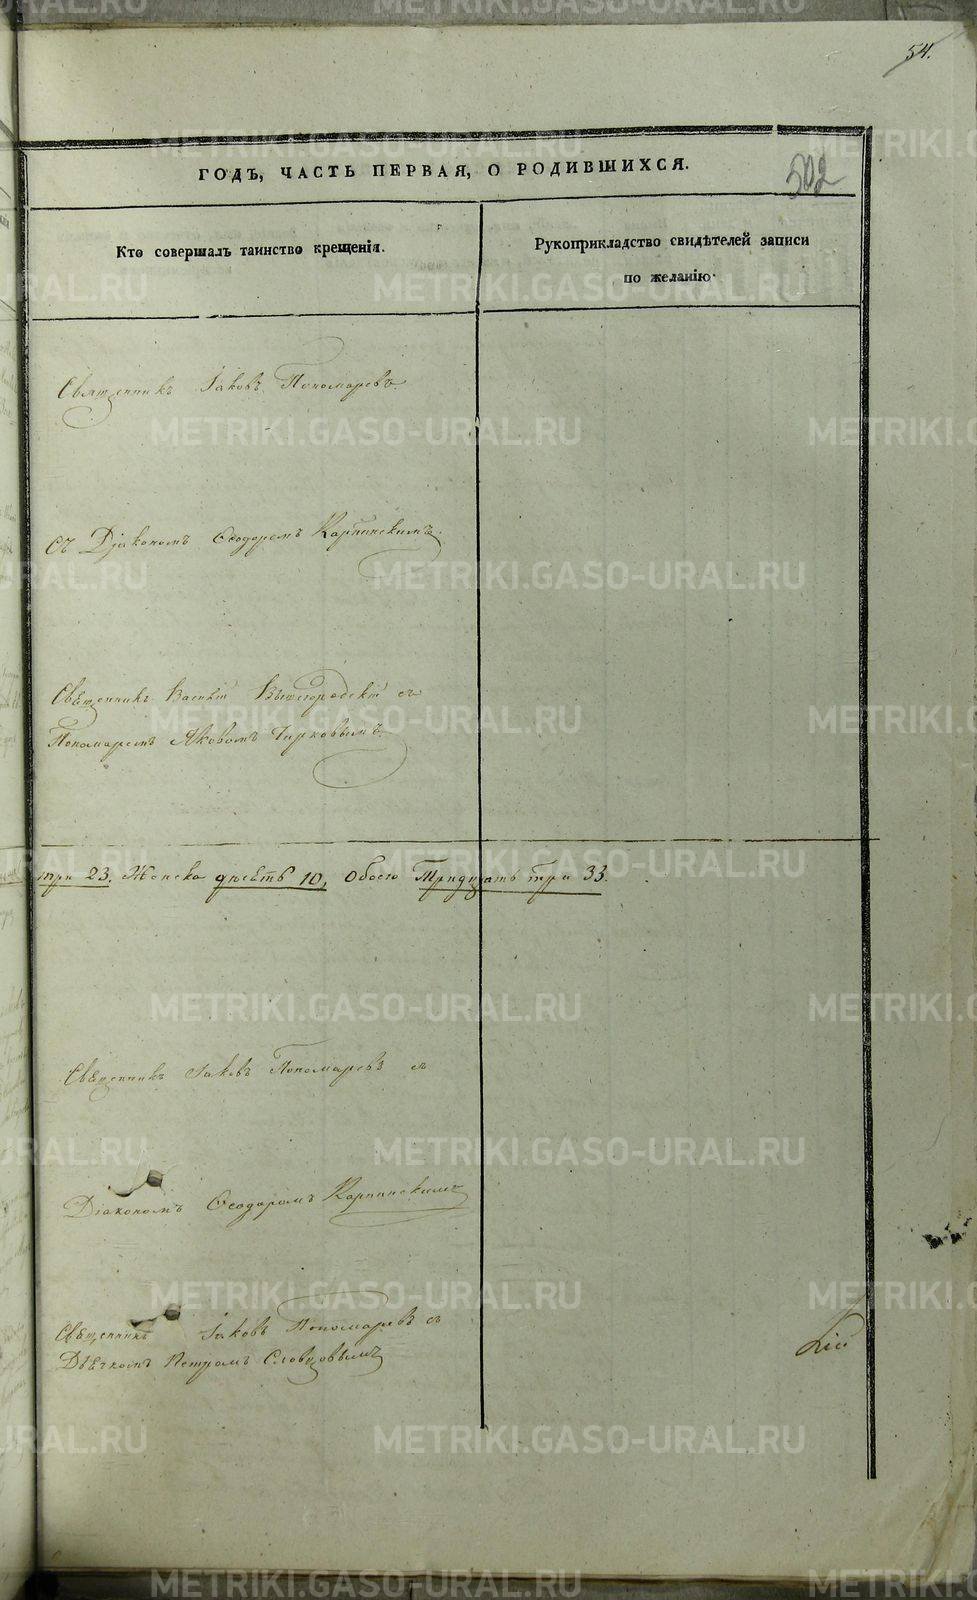 54.
ГОДЪ, ЧАСТЬ ПЕРВАЯ, О РОДИВШИХСЯ.
502
Кто совершалъ таинство крещенія.
Рукоприкладство свидѣтелей записи
по желанію.
Священникъ Іаковъ Пономаревъ
съ Діакономъ Ѳеодоромъ Карпинскимъ.
Священникъ Василій Вышгородскій съ
Пономаремъ Яковомъ Чирковымъ.
три 23. Женска десѧть 10, Обоего Тридцать три 33.
Священникъ Іаковъ Пономаревъ съ
Діакономъ Ѳеодоромъ Карпинскимъ
Священникъ Іаковъ Пономаревъ съ
Дьячкомъ Петромъ Словцовымъ
METRIKI.GASO-URAL.RU